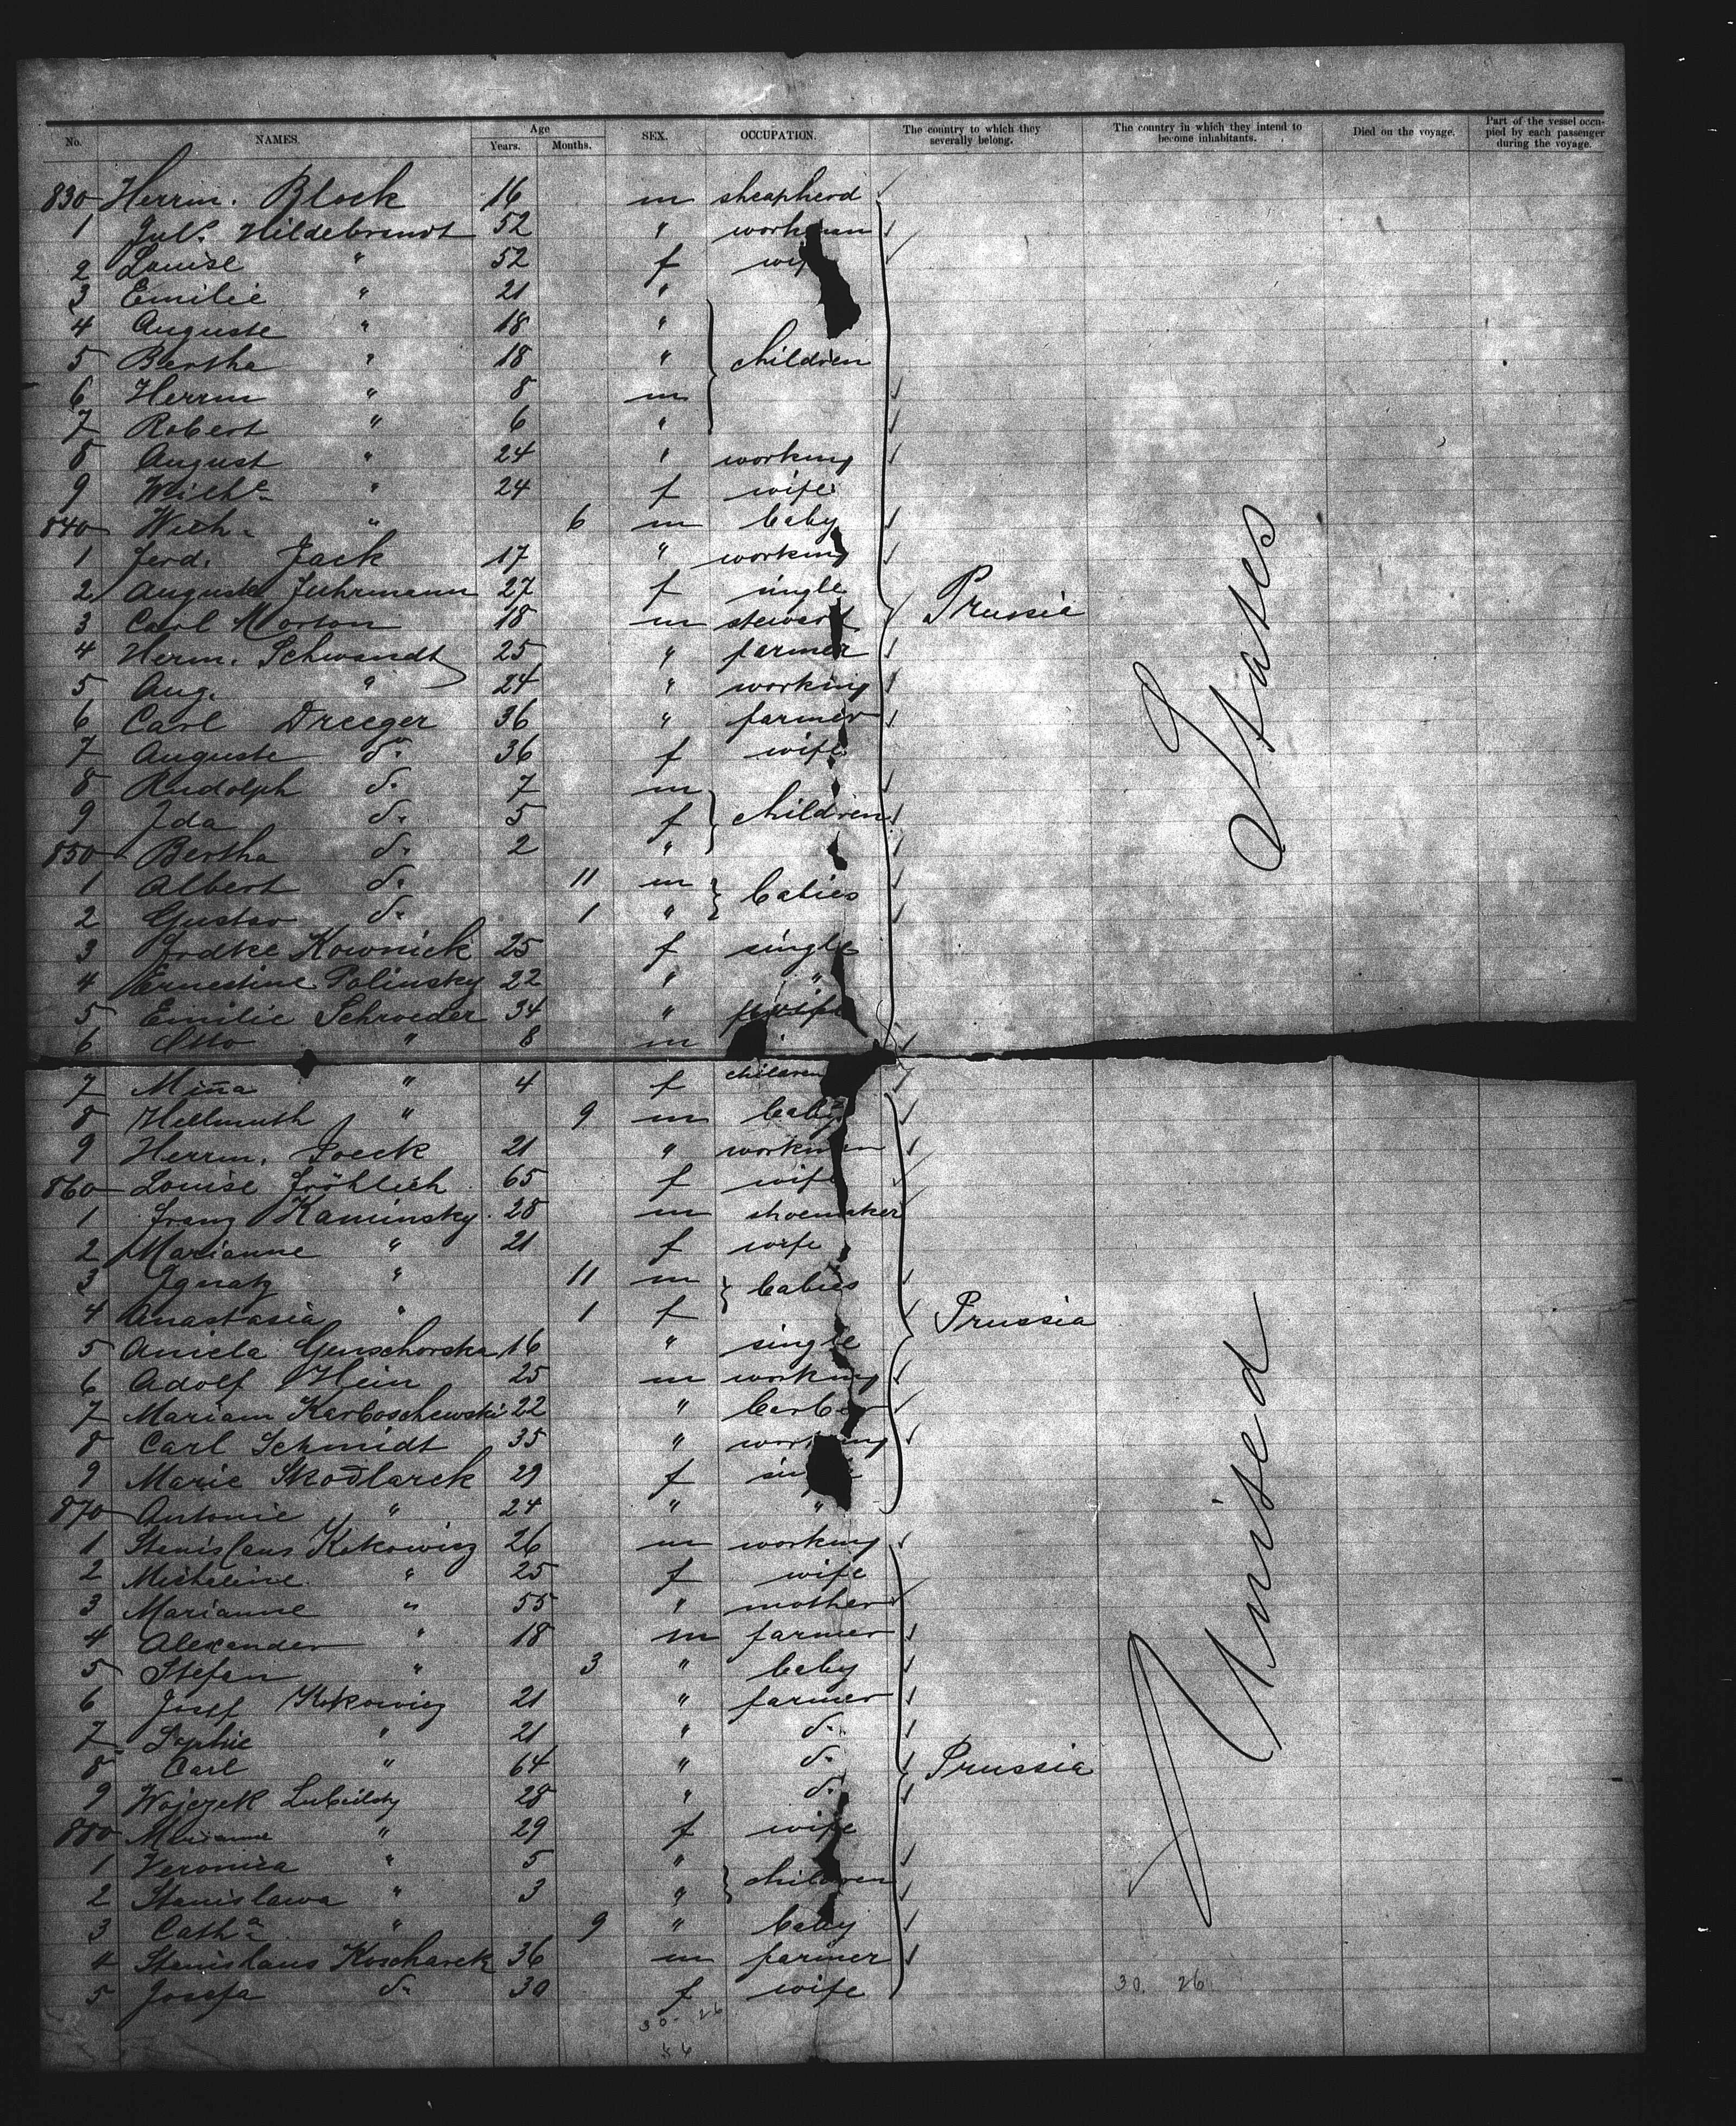 No. NAMES. Age Years. Months. SEX. OCCUPATION. The country to which they severally belong. The country in which they intend to become inhabitants. Died on the voyage. Part of the vessel occupied by each passenger during the voyage.
830 Herrm. Block 16 m sheapherd
1 Jul. Hildebrandt 52 " workman
2 Louise " 52 f wife
3 Emilie " 21 "
4 Auguste " 18 "
5 Bertha " 18 " children
6 Herrm " 8 m
7 Robert " 6 "
8 August " 24 " working
9 Wilhe " 24 f wife
840 Wilh. " 6 m baby
1 Ferd. Jack 17 " working
2 Auguste Fuhrmann 27 f single
3 Carl Morton 18 m stewart Prussia
4 Herm. Schwandt 25 " farmer
5 Aug. " 24 " working
6 Carl Dreeger 36 " farmer
7 Auguste do 36 f wife
8 Rudolph d. 7 m
9 Ida d. 5 f children
850 Bertha d. 2 "
1 Albert d. 11 m babies
2 Gustav d. 1 "
3 Kownick 25 f single
4 Ernestine Polinsky 22 " "
5 Emilie Schroeder 34 " wife
6 Otto " 8 m
7 Mina " 4 f children
8 Hellmuth " 9 m baby
9 Herrm. 21 " workman
860 Louise Fröhlich 65 f wife
1 Franz Kaminsky 28 m shoemaker
2 Marianne " 21 f wife
3 Ignatz " 11 m babies
4 Anastasia " 1 f Prussia
5 Aniela 16 " single
6 Adolf Hein 25 m working
7 Mariam Karboschewski 22 " barber
8 Carl Schmidt 35 " working
9 Marie Skodlarek 29 f
870 Antonie " 24 " "
1 Stanislaus Kokowicz 26 m working
2 Micheline " 25 f wife
3 Marianne " 55 " mother
4 Alexander " 18 m farmer
5 Stefan " 3 " baby
6 Josef Kokowicz 21 " farmer
7 Sophie " 21 " d.
8 Carl " 64 " d. Prussia
9 Wojczek 28 " d.
880 Marianne " 29 f wife
1 Veronica " 5 "
2 Stanislawa " 3 " children
3 Catha " 9 " baby
4 Stanislaus Koscharek 36 m farmer
5 Josefa d. 30 f wife
30. 26
30. 26
56
United States